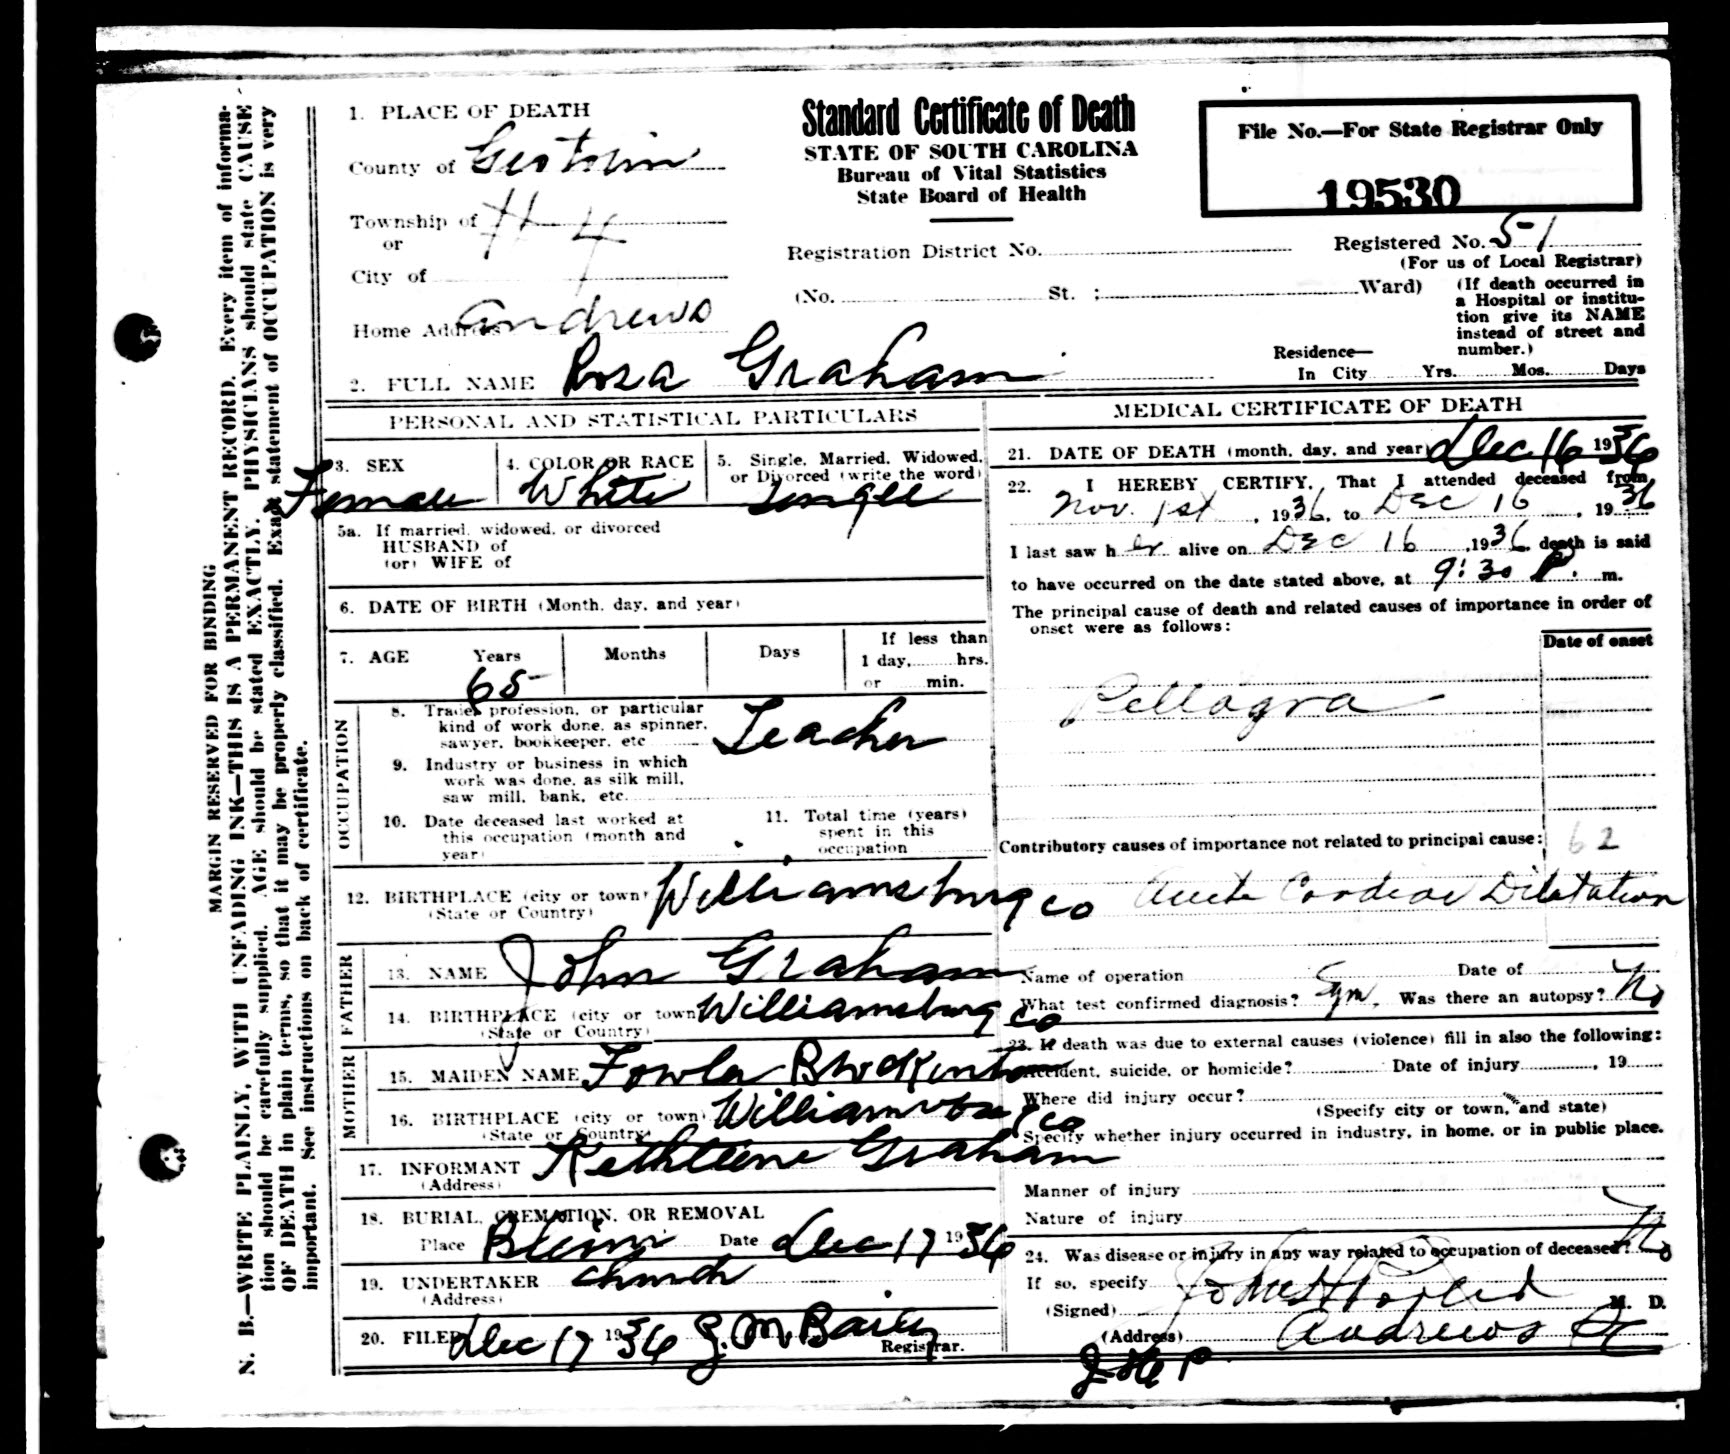 MARGIN RESERVED FOR BINDING
N. B.—WRITE PLAINLY, WITH UNFADING INK—THIS IS A PERMANENT RECORD. Every item of informa-
tion should be carefully supplied. AGE should be stated EXACTLY. PHYSICIANS should state CAUSE
OF DEATH in plain terms, so that it may be properly classified. Exact statement of OCCUPATION is very
important. See instructions on back of certificate.
Standard Certificate of Death
STATE OF SOUTH CAROLINA
Bureau of Vital Statistics
State Board of Health
File No.—For State Registrar Only
19530
1. PLACE OF DEATH
County of
Township of # 4
or
City of
Home Address Andrews
Registration District No.
Registered No. 51
(For us of Local Registrar)
(No. St. ; Ward)
(If death occurred in
a Hospital or institu-
tion give its NAME
instead of street and
number.)
Residence—
In City Yrs. Mos. Days
2. FULL NAME Rosa Graham
PERSONAL AND STATISTICAL PARTICULARS
3. SEX
Female
4. COLOR OR RACE
White
5. Single, Married, Widowed,
or Divorced (write the word)
Single
5a. If married, widowed, or divorced
HUSBAND of
(or) WIFE of
6. DATE OF BIRTH (Month, day, and year)
7. AGE Years Months Days If less than
1 day, hrs.
or min.
65
OCCUPATION
8. Trade, profession, or particular
kind of work done, as spinner,
sawyer, bookkeeper, etc Teacher
9. Industry or business in which
work was done, as silk mill,
saw mill, bank, etc.
10. Date deceased last worked at
this occupation (month and
year)
11. Total time (years)
spent in this
occupation
12. BIRTHPLACE (city or town) Williamsburg Co
(State or Country)
FATHER
13. NAME John Graham
14. BIRTHPLACE (city or town) Williamsburg Co
(State or Country)
MOTHER
15. MAIDEN NAME Fowler Brockinton
16. BIRTHPLACE (city or town) Williamsburg Co
(State or Country)
17. INFORMANT Graham
(Address)
18. BURIAL, CREMATION, OR REMOVAL
Place Date Dec 17 1936
19. UNDERTAKER Church
(Address)
20. FILED Dec 17 1936 J. M. Bailey
Registrar.
MEDICAL CERTIFICATE OF DEATH
21. DATE OF DEATH (month, day, and year) Dec 16 1936
22. I HEREBY CERTIFY, That I attended deceased from
Nov. 1st, 1936, to Dec 16, 1936
I last saw her alive on Dec 16, 1936, death is said
to have occurred on the date stated above, at 9:30 P. m.
The principal cause of death and related causes of importance in order of
onset were as follows:
Date of onset
Pellagra
Contributory causes of importance not related to principal cause:
62
Acute Cardiac Dilatation
Name of operation Date of
What test confirmed diagnosis? Sym. Was there an autopsy? No
23. If death was due to external causes (violence) fill in also the following:
Accident, suicide, or homicide? Date of injury , 19
Where did injury occur?
(Specify city or town, and state)
Specify whether injury occurred in industry, in home, or in public place.
Manner of injury
Nature of injury
24. Was disease or injury in any way related to occupation of deceased? No
If so, specify
(Signed) M. D.
(Address) Andrews SC